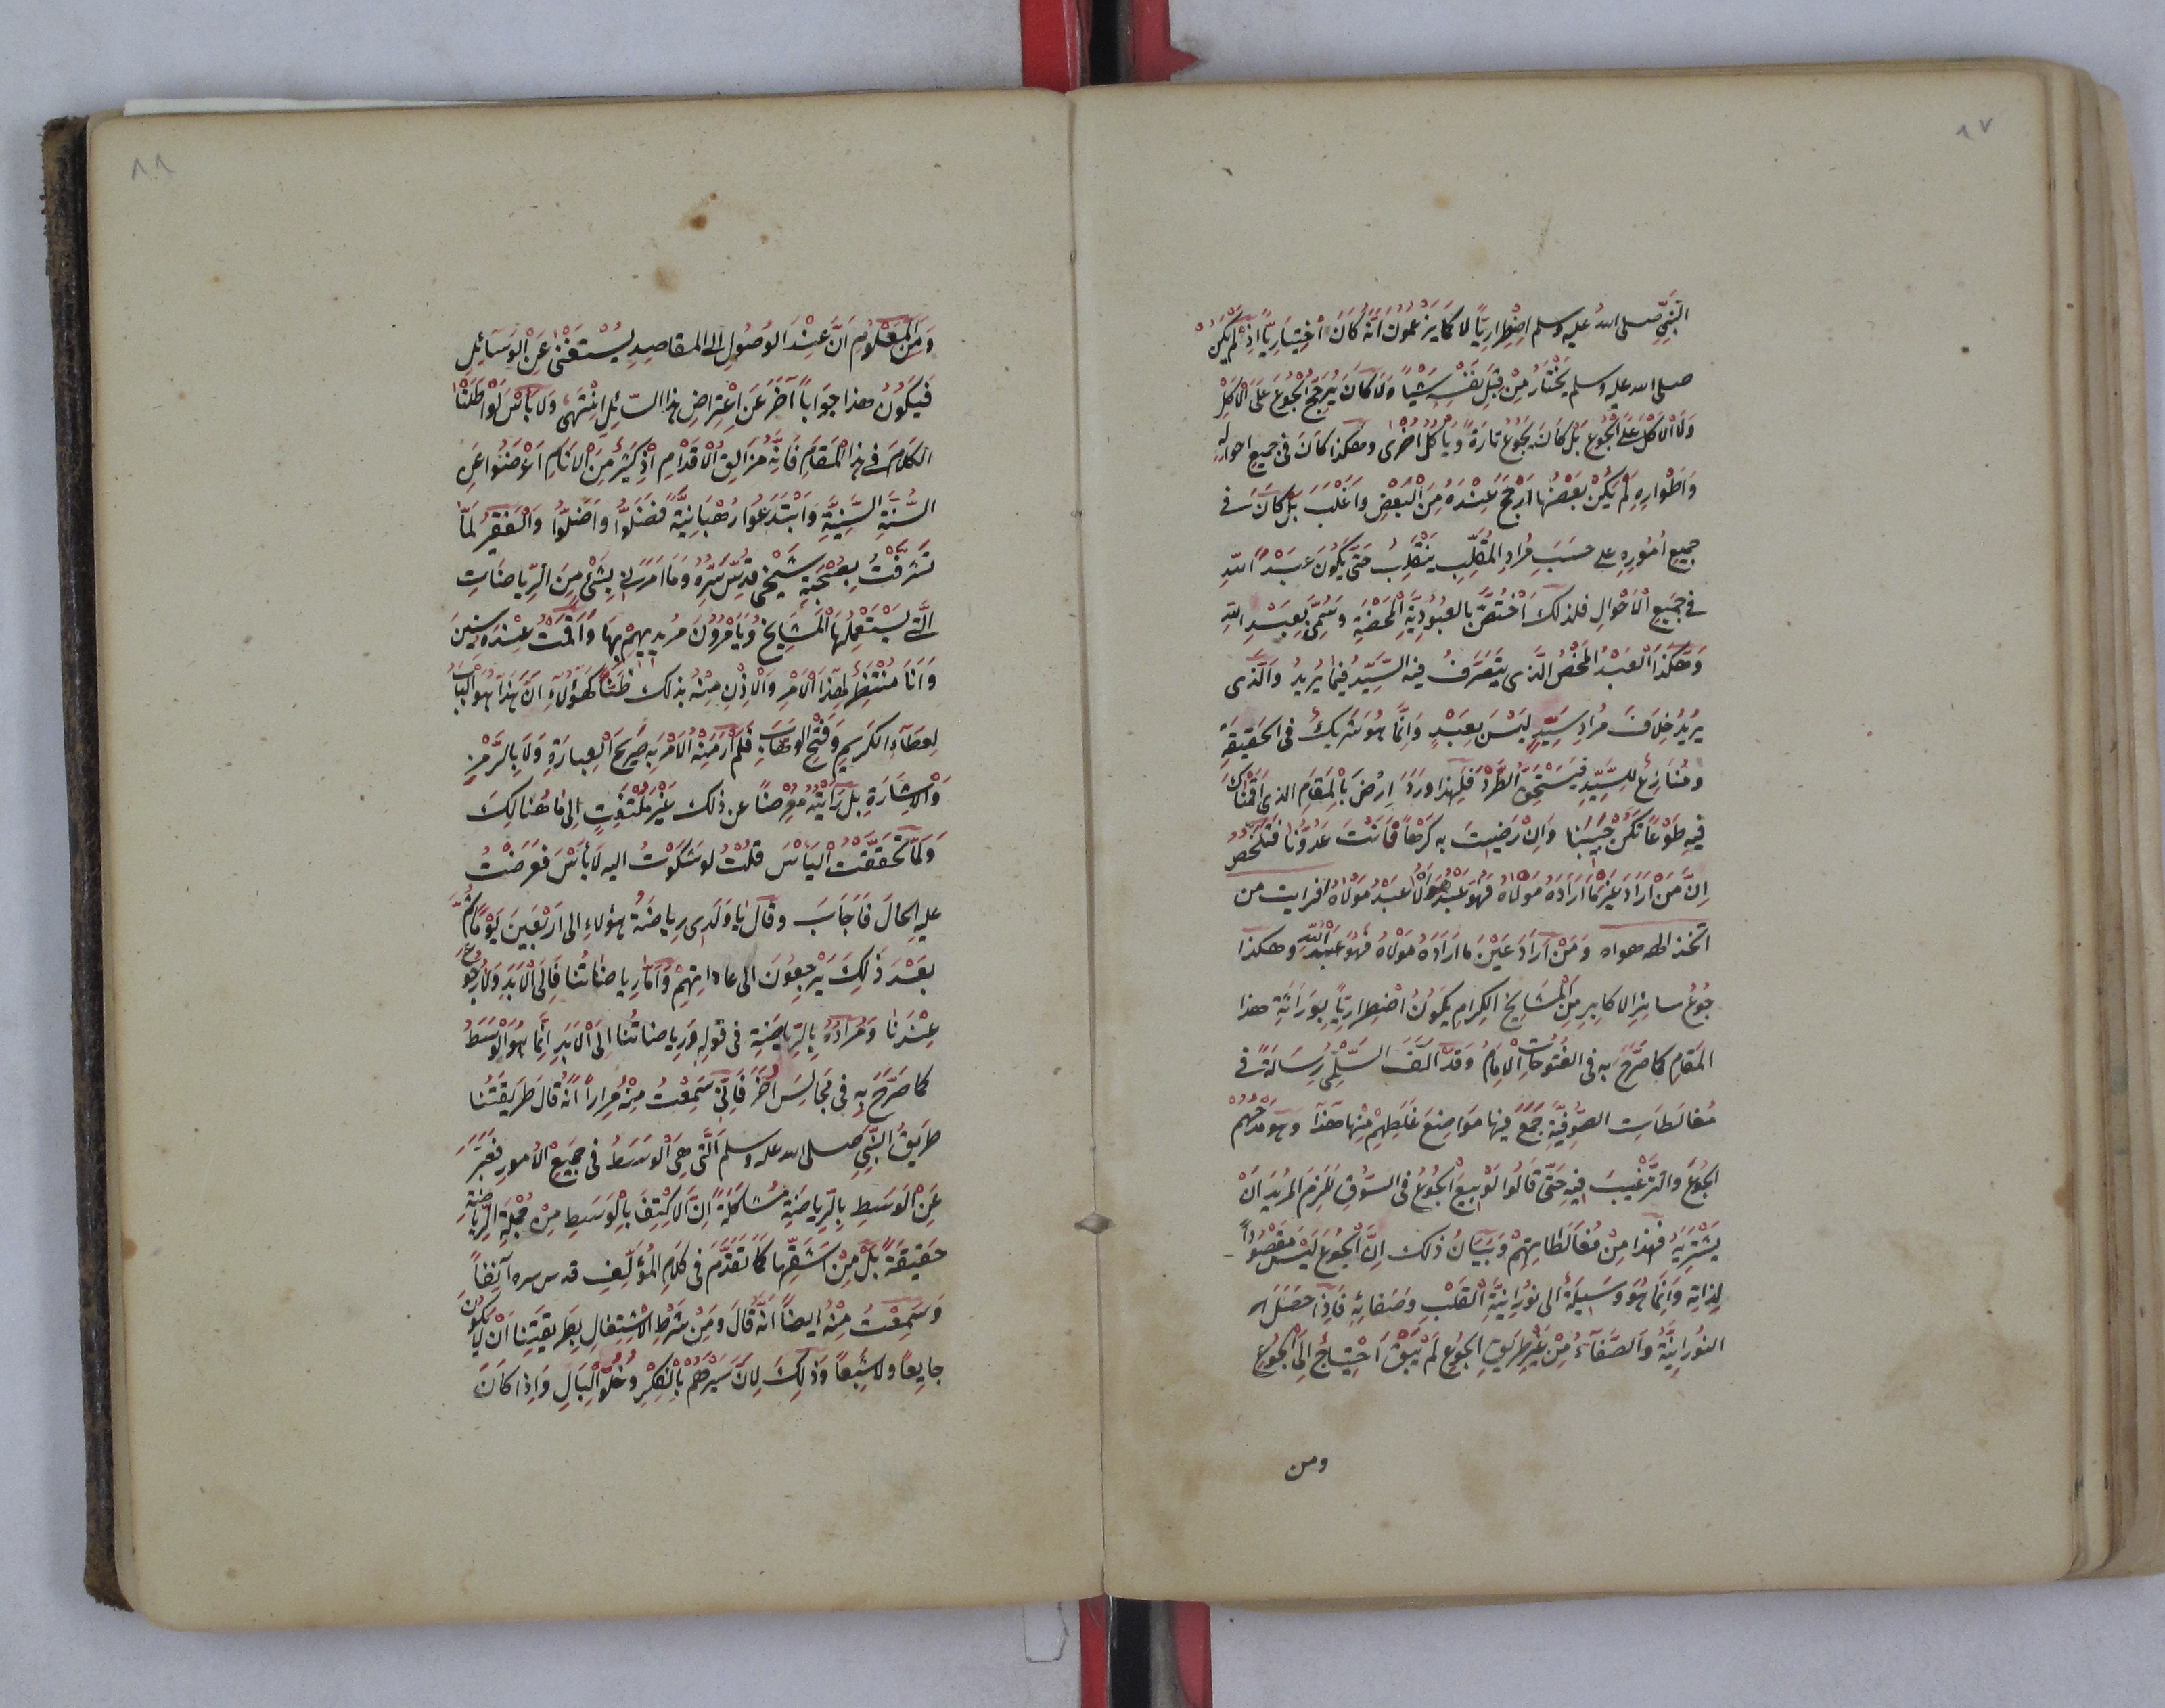 ٨٧
النَّبِيِّ صلى الله عليه وسلم اِضْطِرَارِيًّا لا كَمَا يَزْعُمُونَ اَنَّهُ كَانَ اخْتِيَارِيًّا اِذْ لَمْ يَكُنْ
صلى الله عليه وسلم يَخْتَارُ مِنْ قِبَلِ نَفْسِهِ شَيْئًا وَلَا كَانَ يُرَجِّحُ الْجُوعَ عَلَى الْاَكْلِ
وَلَا الْاَكْلَ عَلَى الْجُوعِ بَلْ كَانَ يَجُوعُ تَارَةً وَيَأْكُلُ اُخْرَى وهكذا كَانَ فِى جميع احواله
وَاَطْوَارِهِ لَمْ يَكُنْ بَعْضُهَا اَرْجَحَ عِنْدَهُ مِنَ الْبَعْضِ وَاَغْلَبَ بَلْ كَانَ فى
جميع اُمُورِهِ على حَسَبِ مُرَادِ الْمُقَلِّبِ يَنْقَلِبُ حَتَّى يَكُونَ عَبْدًا لِلّٰهِ
فى جَمِيعِ الْاَحْوَالِ فلذلك اُخْتُصَّ بالعُبُودِيَّةِ الْمَحْضَةِ وَسُمِّىَ بِعَبْدِ اللّٰهِ
وَهَكَذَا الْعَبْدُ الْمَحْضُ الَّذى يَتَصَرَّفُ فيه السَّيِّدُ فِيمَا يُرِيدُ وَالَّذى
يُرِيدُ خِلَافَ مُرَادِ سَيِّدِهِ لَيْسَ بِعَبْدٍ وَاِنَّمَا هُوَ شَرِيكٌ فى الحَقِيقَةِ
ومُنَازِعٌ لِلسَّيِّدِ فَيَسْتَحِقُّ الطَّرْدَ فَلِهذا وَرَدَ اِرْضَ بِالْمَقَامِ الذى اَقَمْنَاكَ
فِيهِ طَوْعًا تَكُنْ حَبِيبَنَا وَاِنْ رَضِيتَ به كَرْهًا فَاَنْتَ عَدُوُّنَا فَتَلَخَّصَ
اِنَّ مَنْ اَرَادَ غَيْرَ مَا اَرَادَهُ مَوْلَاهُ فَهُوَ عَبْدُ هَوَاهُ لَا عَبْدُ مَوْلَاهُ افرايت من
اتّخذ الهه هواه وَمَنْ اَرَادَ عَيْنَ مَا اَرَادَهُ مَوْلَاهُ فَهُوَ عَبْدُ اللّٰهِ وهكذا
جُوعُ سائر الاكابِرِ مِنَ الْمَشَايِخِ الكِرامِ يَكُونُ اضْطِرَارِيًّا بِوَرَاثَةِ هذا
المَقَامِ كما صَرَّحَ به فى الفُتُوحَاتِ الامامُ وَقَدْ اَلَّفَ السُّلَمِىُّ رِسَالَةً فى
مُغالَطَاتِ الصُّوفِيَّةِ جَمَعَ فِيهَا مَوَاضِعَ غَلَطِهِمْ مِنْهَا هَذَا وهو مَدْحُهُمُ
الجُوعَ وَالتَّرْغِيبَ فيه حَتَّى قَالُوا لَوْ بِيعَ الْجُوعُ فى السُّوقِ لَلَزِمَ المريدَ اَنْ
يَشْتَرِيَهُ فَهَذَا مِنْ مُغَالَطَاتِهِمْ وَبَيَانُ ذلك اِنَّ الْجُوعَ لَيْسَ مَقْصُودًا
لِذَاتِهِ وَاِنَّمَا هُوَ وَسِيلَةٌ الى نُورَانِيَّةِ الْقَلْبِ وَصَفَائِهِ فَاِذَا حَصَلَ له
النُورَانِيَّةُ وَالصَّفَاءُ مِنْ غَيْرِ طَرِيقِ الجُوعِ لَمْ يَبْقَ احْتِيَاجٌ اِلَى الْجُوعِ
ومن
٨٨
وَمِنَ الْمَعْلُومِ اَنَّ عِنْدَ الوُصُولِ الى المقاصِدِ يُسْتَغْنَى عَنِ الْوَسَائِلِ
فَيَكُونُ هذا جَوَابًا آخَرَ عَنِ اعْتِرَاضِ هذا السَّائِلِ اِنْتَهَى وَلَا بَأْسَ لَوْ اَطَلْنَا
الكَلَامَ فى هذا الْمَقَامِ فَاِنَّهُ مَزَالِقُ الْاَقْدَامِ اِذْ كَثِيرٌ مِنَ الْاَنَامِ اَعْرَضُوا عَنِ
السُّنَّةِ السَّنِيَّةِ وَابْتَدَعُوا رُهْبَانِيَّةً فَضَلُّوا وَاَضَلُّوا وَالفَقِيرُ لَمَّا
تَشَرَّفْتُ بِصُحْبَةِ شَيْخِى قُدِّسَ سِرُّهُ وَمَا اَمَرَنِى بِشَىْءٍ مِنَ الرِّيَاضَاتِ
الَّتِى يَسْتَعْمِلُهَا الْمَشَايِخُ وَيَأْمُرُونَ مُرِيدِيهِمْ بِهَا وَاَقَمْتُ عِنْدَهُ سِنِينَ
وَاَنَا مُنْتَظِرٌ لِهَذَا الْاَمْرِ وَالْاِذْنِ مِنْهُ بذلك ظَنًّا كَهَؤُلَاءِ اَنَّ هَذَا هُوَ الْبَابُ
لِعَطَاءِ الكَرِيمِ وَفَتْحِ الْوَهَّابِ فَلَمْ اَرَ مِنْهُ الْاَمْرَ بِهِ صَرِيحَ الْعِبَارَةِ وَلَا بِالرَّمْزِ
وَالْاِشَارَةِ بَلْ رَاَيْتُهُ مُعْرِضًا عن ذلك غَيْرَ مُلْتَفِتٍ اِلى مَا هُنَالِكَ
وَلَمَّا تَحَقَّقْتُ الْيَأْسَ قُلْتُ لو شَكَوْتُ اليه لَا بَأْسَ فَعَرَضْتُ
عليه الحَالَ فَاَجَابَ وقَالَ يَا وَلَدِى رِيَاضَةُ هؤلاءِ الى اَرْبَعِينَ يَوْمًا ثُمَّ
بَعْدَ ذَلِكَ يَرْجِعُونَ الى عَادَاتِهِمْ وَاَمَّا رِيَاضَاتُنا فَاِلَى الْاَبَدِ وَلَا رُجُوعَ
عِنْدَنَا وَمُرَادُهُ بِالرِّيَاضَةِ فى قَوْلِهِ وَرِيَاضَاتُنَا اِلَى الْاَبَدِ اِنَّمَا هُوَ الْوَسَطُ
كما صَرَّحَ بِهِ فى مَجَالِسَ اُخَرَ فَاِنِّى سَمِعْتُ مِنْهُ مِرَارًا اَنَّهُ قَالَ طَرِيقَتُنَا
طَرِيقُ النَّبِىِّ صلى الله عليه وسلم الَّتِى هِىَ الْوَسَطُ فى جَمِيعِ الْاُمورِ فَعَبَّرَ
عَنِ الْوَسَطِ بِالرِّيَاضَةِ مُشَاكَلَةً اِنْ الاكْتِفَ بِالْوَسَطِ مِنْ جُمْلَةِ الرِّيَاضَةِ
حَقِيقَةً بَلْ مِنْ اَشَقِّهَا كَمَا تَقَدَّمَ فى كَلَامِ الْمُؤَلِّفِ قدس سره آنِفًا
وَسَمِعْتُ مِنْهُ ايضًا اَنَّهُ قَالَ وَمِنْ شَرْطِ الْاِشْتِغَالِ بِطَرِيقَتِنَا اَنْ لَا يَكُونَ
جايِعًا ولا شَبِعًا وَذَلِكَ لِاَنَّ سَيْرَهُمْ بِالْفِكْرِ وَخُلُوِّ الْبَالِ وَاِذَا كَانَ